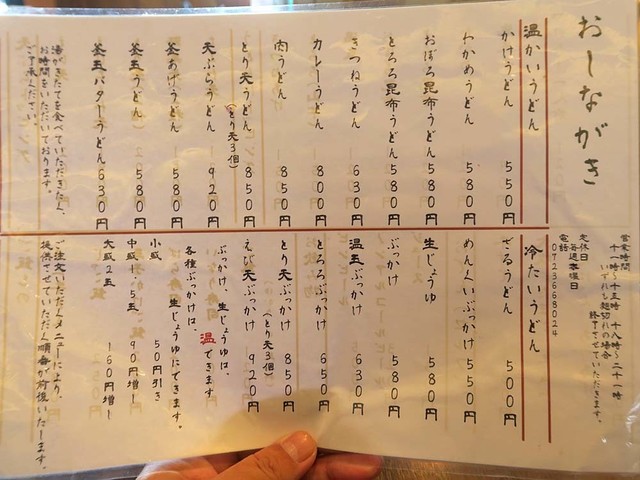 おしながき
営業時間
十一時〜十五時 十八時〜二十一時
いずれも麺切れの場合
終了させていただきます。
定休日
毎週木曜日
電話
0723668024
温かいうどん
かけうどん 550円
わかめうどん 580円
おぼろ昆布うどん 580円
とろろ昆布うどん 580円
きつねうどん 630円
カレーうどん 800円
肉うどん 850円
とり天うどん 850円
(とり天3個)
天ぷらうどん 920円
釜あげうどん 580円
釜玉うどん 580円
釜玉バターうどん 630円
湯がきたてを食べていただきたく、
お時間をいただいております。
ご了承ください。
冷たいうどん
ざるうどん 500円
めんくいぶっかけ 550円
生じょうゆ 550円
ぶっかけ 580円
温玉ぶっかけ 630円
とろろぶっかけ 650円
とり天ぶっかけ 850円
(とり天3個)
えび天ぶっかけ 920円
ぶっかけ、生じょうゆは、
温できます。
各種ぶっかけは、
生じょうゆにできます。
小盛 50円引き
中盛 1.5玉 90円増し
大盛 2玉 160円増し
ご注文いただくメニューにより、
提供させていただく順番が前後いたします。